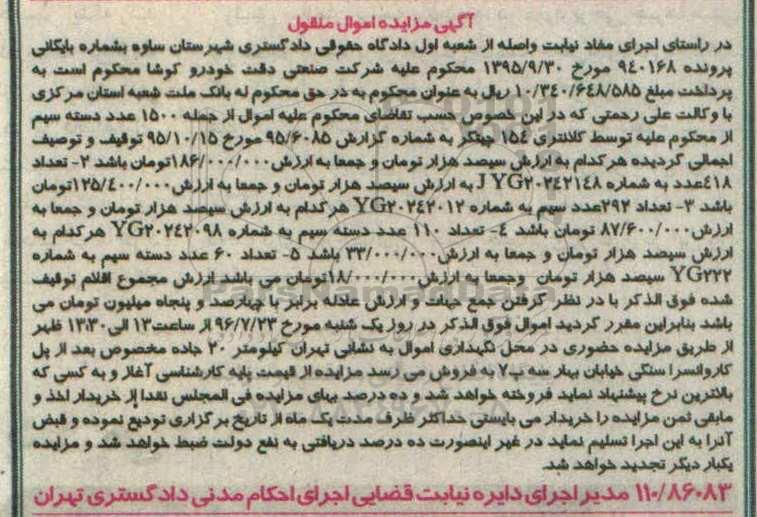 آگهی مزایده اموال منقول
در راستای اجرای مفاد نیابت واصله از شعبه اول دادگاه حقوقی دادگستری شهرستان ساوه بشماره بایگانی
پرونده ۹٤۰۱۶۸ مورخ ۱۳۹۵/۹/۳۰ محکوم علیه شرکت صنعتی دقت خودرو کوشا محکوم است به
پرداخت مبلغ ۱۰/۳٤۰/۶٤۸/۵۸۵ ریال به عنوان محکوم به در حق محکوم له بانک ملت شعبه استان مرکزی
با وکالت علی رحمتی که در این خصوص حسب تقاضای محکوم علیه اموال از جمله ۱۵۰۰ عدد دسته سیم
از محکوم علیه توسط کلانتری ۱۵٤ چیتگر به شماره گزارش ۹۵/۶۰۸۵ مورخ ۹۵/۱۰/۱۵ توقیف و توصیف
اجمالی گردیده هر کدام به ارزش سیصد هزار تومان و جمعا به ارزش ۱۸۶/۰۰۰/۰۰۰تومان باشد ۲- تعداد
٤۱۸عدد به شماره J YG۲۰۲٤۲۱٤۸ به ارزش سیصد هزار تومان و جمعا به ارزش ۱۲۵/٤۰۰/۰۰۰تومان
باشد ۳- تعداد ۲۹۲عدد سیم به شماره YG۲۰۲٤۲۰۱۲ هر کدام به ارزش سیصد هزار تومان و جمعا به
ارزش ۸۷/۶۰۰/۰۰۰ تومان باشد ٤- تعداد ۱۱۰ عدد دسته سیم به شماره YG۲۰۲٤۲۰۹۸ هر کدام به
ارزش سیصد هزار تومان و جمعا به ارزش ۳۳/۰۰۰/۰۰۰ باشد ۵- تعداد ۶۰ عدد دسته سیم به شماره
YG۲۲۲ سیصد هزار تومان وجمعا به ارزش ۱۸/۰۰۰/۰۰۰تومان می باشد ارزش مجموع اقلام توقیف
شده فوق الذکر با در نظر گرفتن جمع جهات و ارزش عادله برابر با چهارصد و پنجاه میلیون تومان می
باشد بنابراین مقرر گردید اموال فوق الذکر در روز یک شنبه مورخ ۹۶/۷/۲۳ از ساعت ۱۳ الی ۱۳:۳۰ ظهر
از طریق مزایده حضوری در محل نگهداری اموال به نشانی تهران کیلومتر ۲۰ جاده مخصوص بعد از پل
کاروانسرا سنگی خیابان بهار سه پ۷ به فروش می رسد مزایده از قیمت پایه کارشناسی آغاز و به کسی که
بالاترین نرخ پیشنهاد نماید فروخته خواهد شد و ده درصد بهای مزایده فی المجلس نقدا از خریدار اخذ و
مابقی ثمن مزایده را خریدار می بایستی حداکثر ظرف مدت یک ماه از تاریخ برگزاری تودیع نموده و قبض
آنرا به این اجرا تسلیم نماید در غیر اینصورت ده درصد دریافتی به نفع دولت ضبط خواهد شد و مزایده
یکبار دیگر تجدید خواهد شد.
۱۱۰/۸۶۰۸۳ مدیر اجرای دایره نیابت قضایی اجرای احکام مدنی دادگستری تهران